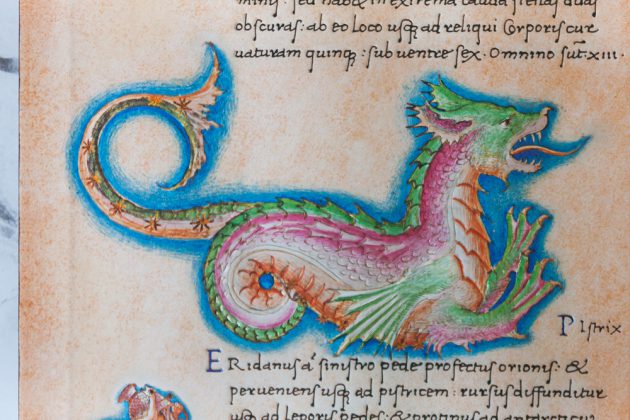 minis. sed habet in extrema cauda stellas duas
obscuras: ab eo loco usq; ad reliqui Corporis cur
uaturam quinq;: sub uentre sex. Omnino sūt. xiii.
PIstrix
ERidanus a' sinistro pede profectus orionis: &
perueniens usq; ad pistricem: rursus diffunditur
usq; ad leporis pedes: & protinus ad antarcticū